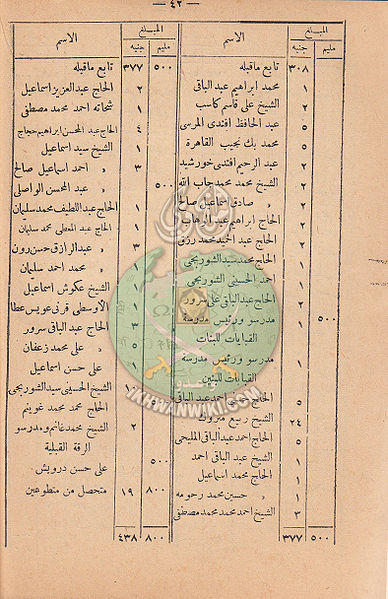 — ٤٢ —
المبلغ
الاسم
مليم
جنيه
٣٠٨ تابع ماقبله
١ محمد ابراهيم عبد الباقى
٢ الشيخ على قاسم كاسب
٥ عبد الحافظ افندى المرسى
٥ محمد بك نجيب القاهرة
٢ عبد الرحيم افندى خورشيد
٢ الشيخ محمد محمد جاب الله
٢ » صادق اسماعيل صالح
الحاج ابراهيم عبد الوهاب
الحاج عبد الحميد محمد رزق
الحاج محمد سيد الشوربجى
احمد الحسينى الشوربجى
الحاج عبد الباقى على سرور
٥٠٠ مدرسو ورئيس مدرسة
القبايات للبنات
١ مدرسو ورئيس مدرسة
القبايات للبنين
٥ الحاج احمد عبد الباقى
٢٤ الشيخ ربيع
٥ الحاج احمد عبد الباقى المليجى
١ الشيخ عبد الباقى احمد
١ الحاج محمد اسماعيل
١ » حسين محمد رحومه
٣ الشيخ احمد محمد محمد مصطفى
٥٠٠ ٣٧٧
المبلغ
الاسم
مليم
جنيه
٥٠٠ ٣٧٧ تابع ماقبله
٢ الحاج عبد العزيز اسماعيل
١ شحاته احمد محمد مصطفى
٤ الحاج عبد المحسن ابراهيم حجاج
١ الشيخ سيد اسماعيل
٣ » احمد اسماعيل صالح
٥٠٠ » عبد المحسن الواصلى
١ الحاج عبد اللطيف محمد سليمان
١ الحاج عبد المعطى محمد سليمان
٣ » عبد الرازق حسن رون
١ » محمد احمد سليمان
١ الشيخ عكوش اسماعيل
١ الأوسطى قرنى عويس عطا
٣ الحاج عبد الباقى سرور
٥ » على محمد زعفان
١ على حسن اسماعيل
١٠ الشيخ الحسينى سيد الشوربجى
الحاج محمد محمد غونيم
٢ الشيخ محمد غانم ومدرسو
الرقة القبلية
٥٠٠ على حسن درويش
٨٠٠ ١٩ متحصل من متطوعين
٨٠٠ ٤٣٨
IKHWANWIKI.COM